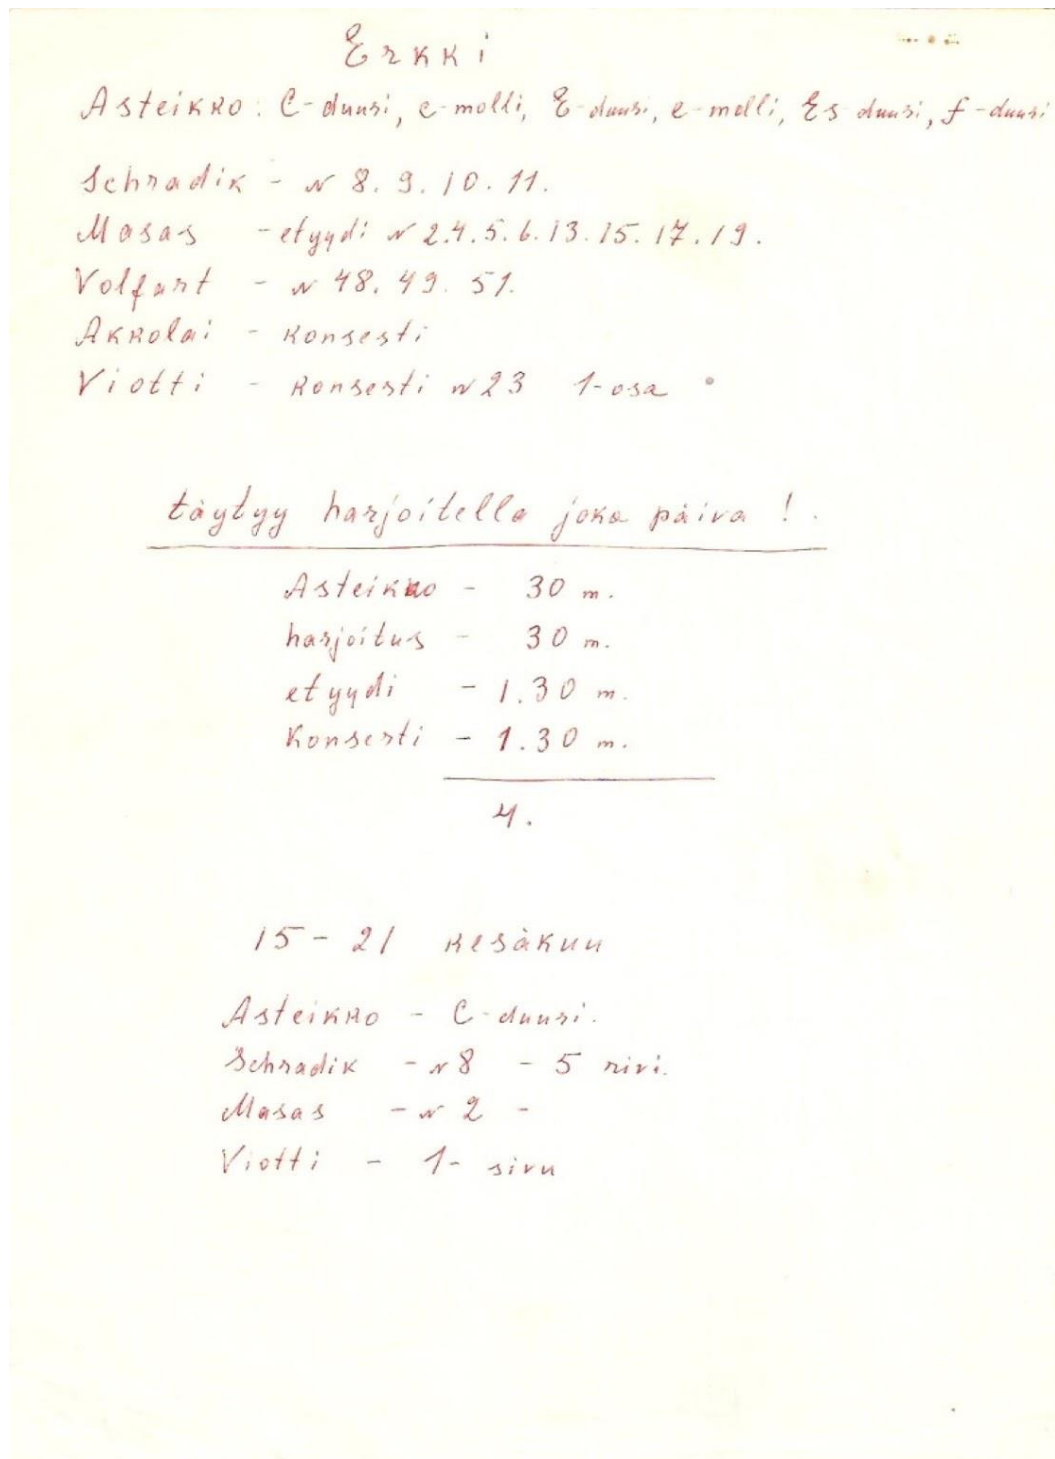 Erkki
Asteikko: C-duuri, c-molli, E-duuri, e-molli, Es duuri, f-duuri
Schradik - N 8. 9. 10. 11.
Masas - etyydi N 2.4.5.6.13.15.17.19.
Volfart - N 48. 49. 51.
Akkolai - konserti
Viotti - konserti N 23 1-osa
täytyy harjoitella joka päiva !.
Asteikko - 30 m.
harjoitus - 30 m.
etyydi - 1.30 m.
Konserti - 1.30 m.
4.
15 - 21 kesäkuu
Asteikko - C-duuri.
Schradik - N 8 - 5 rivi.
Masas - N 2 -
Viotti - 1- sivu